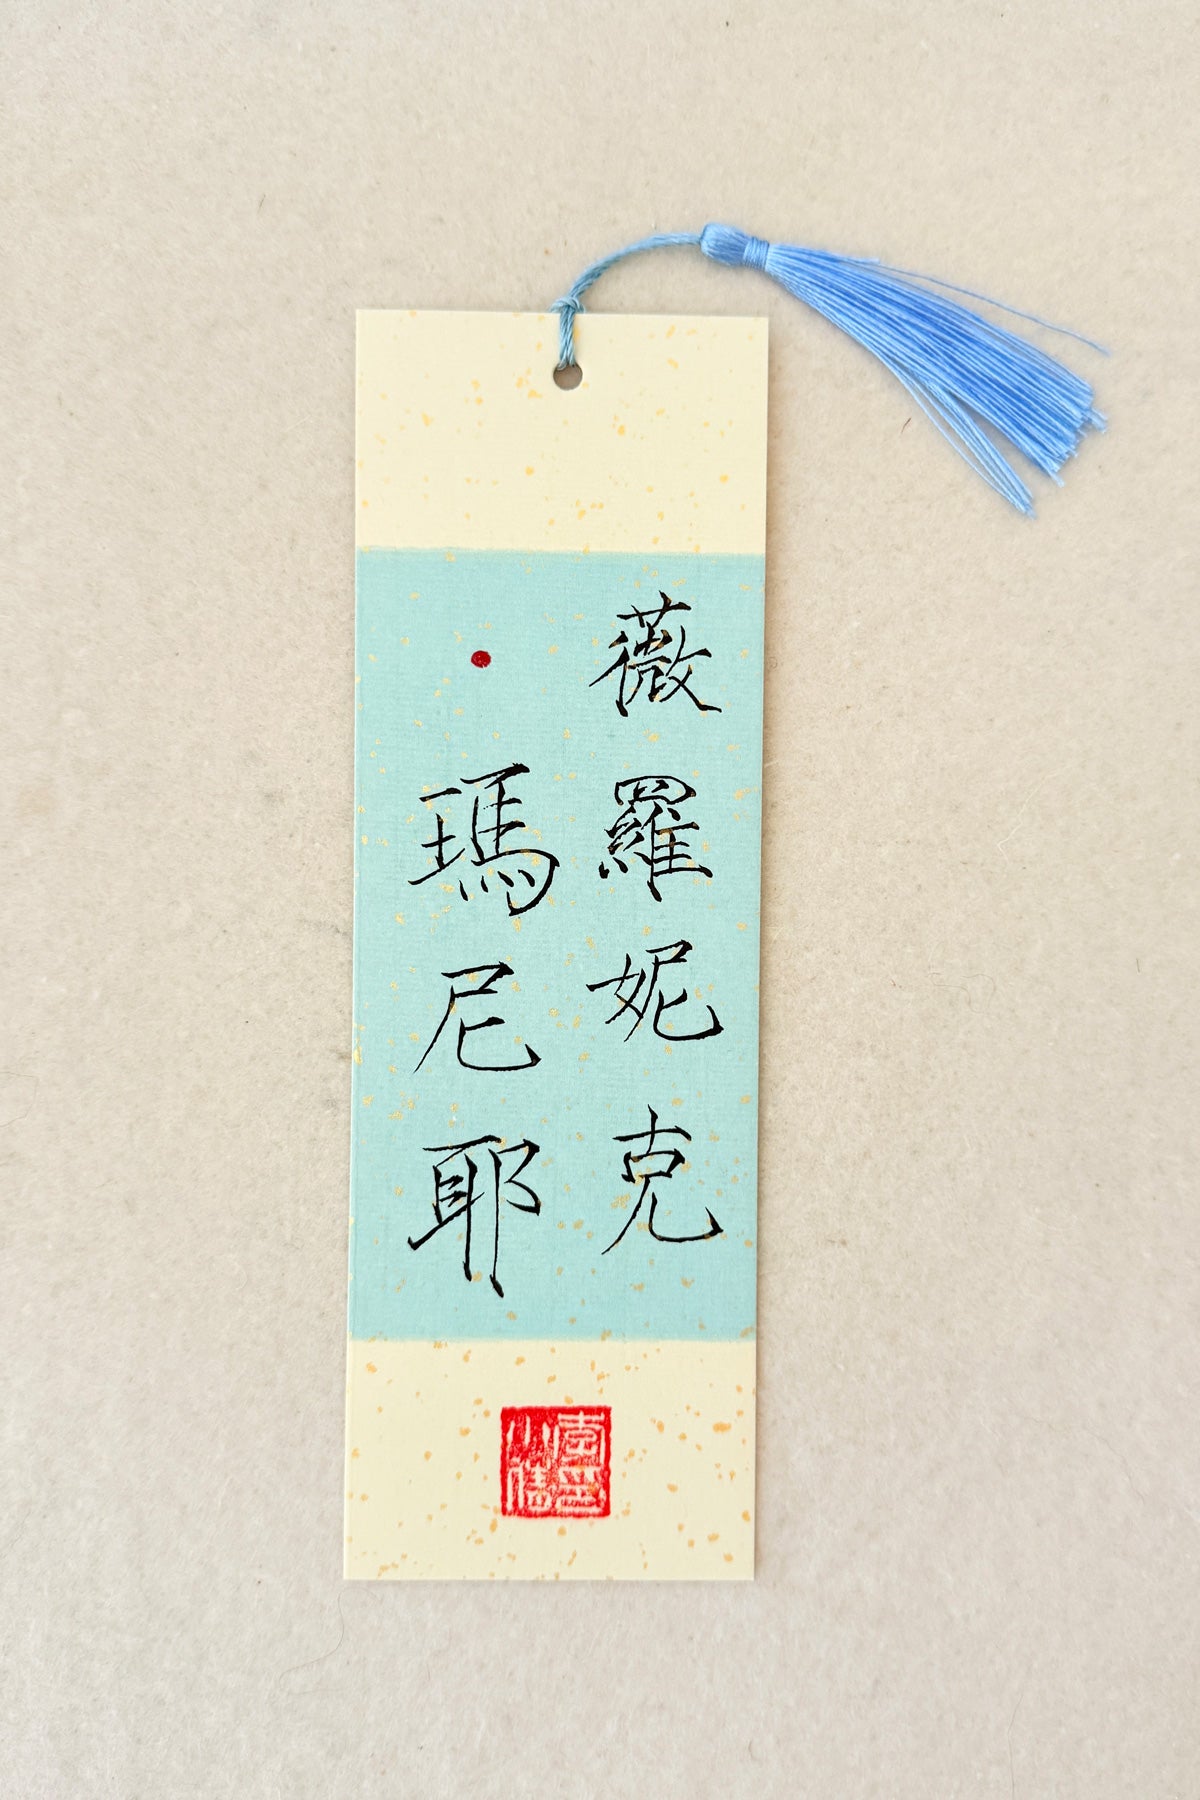 薇羅妮克
·瑪尼耶